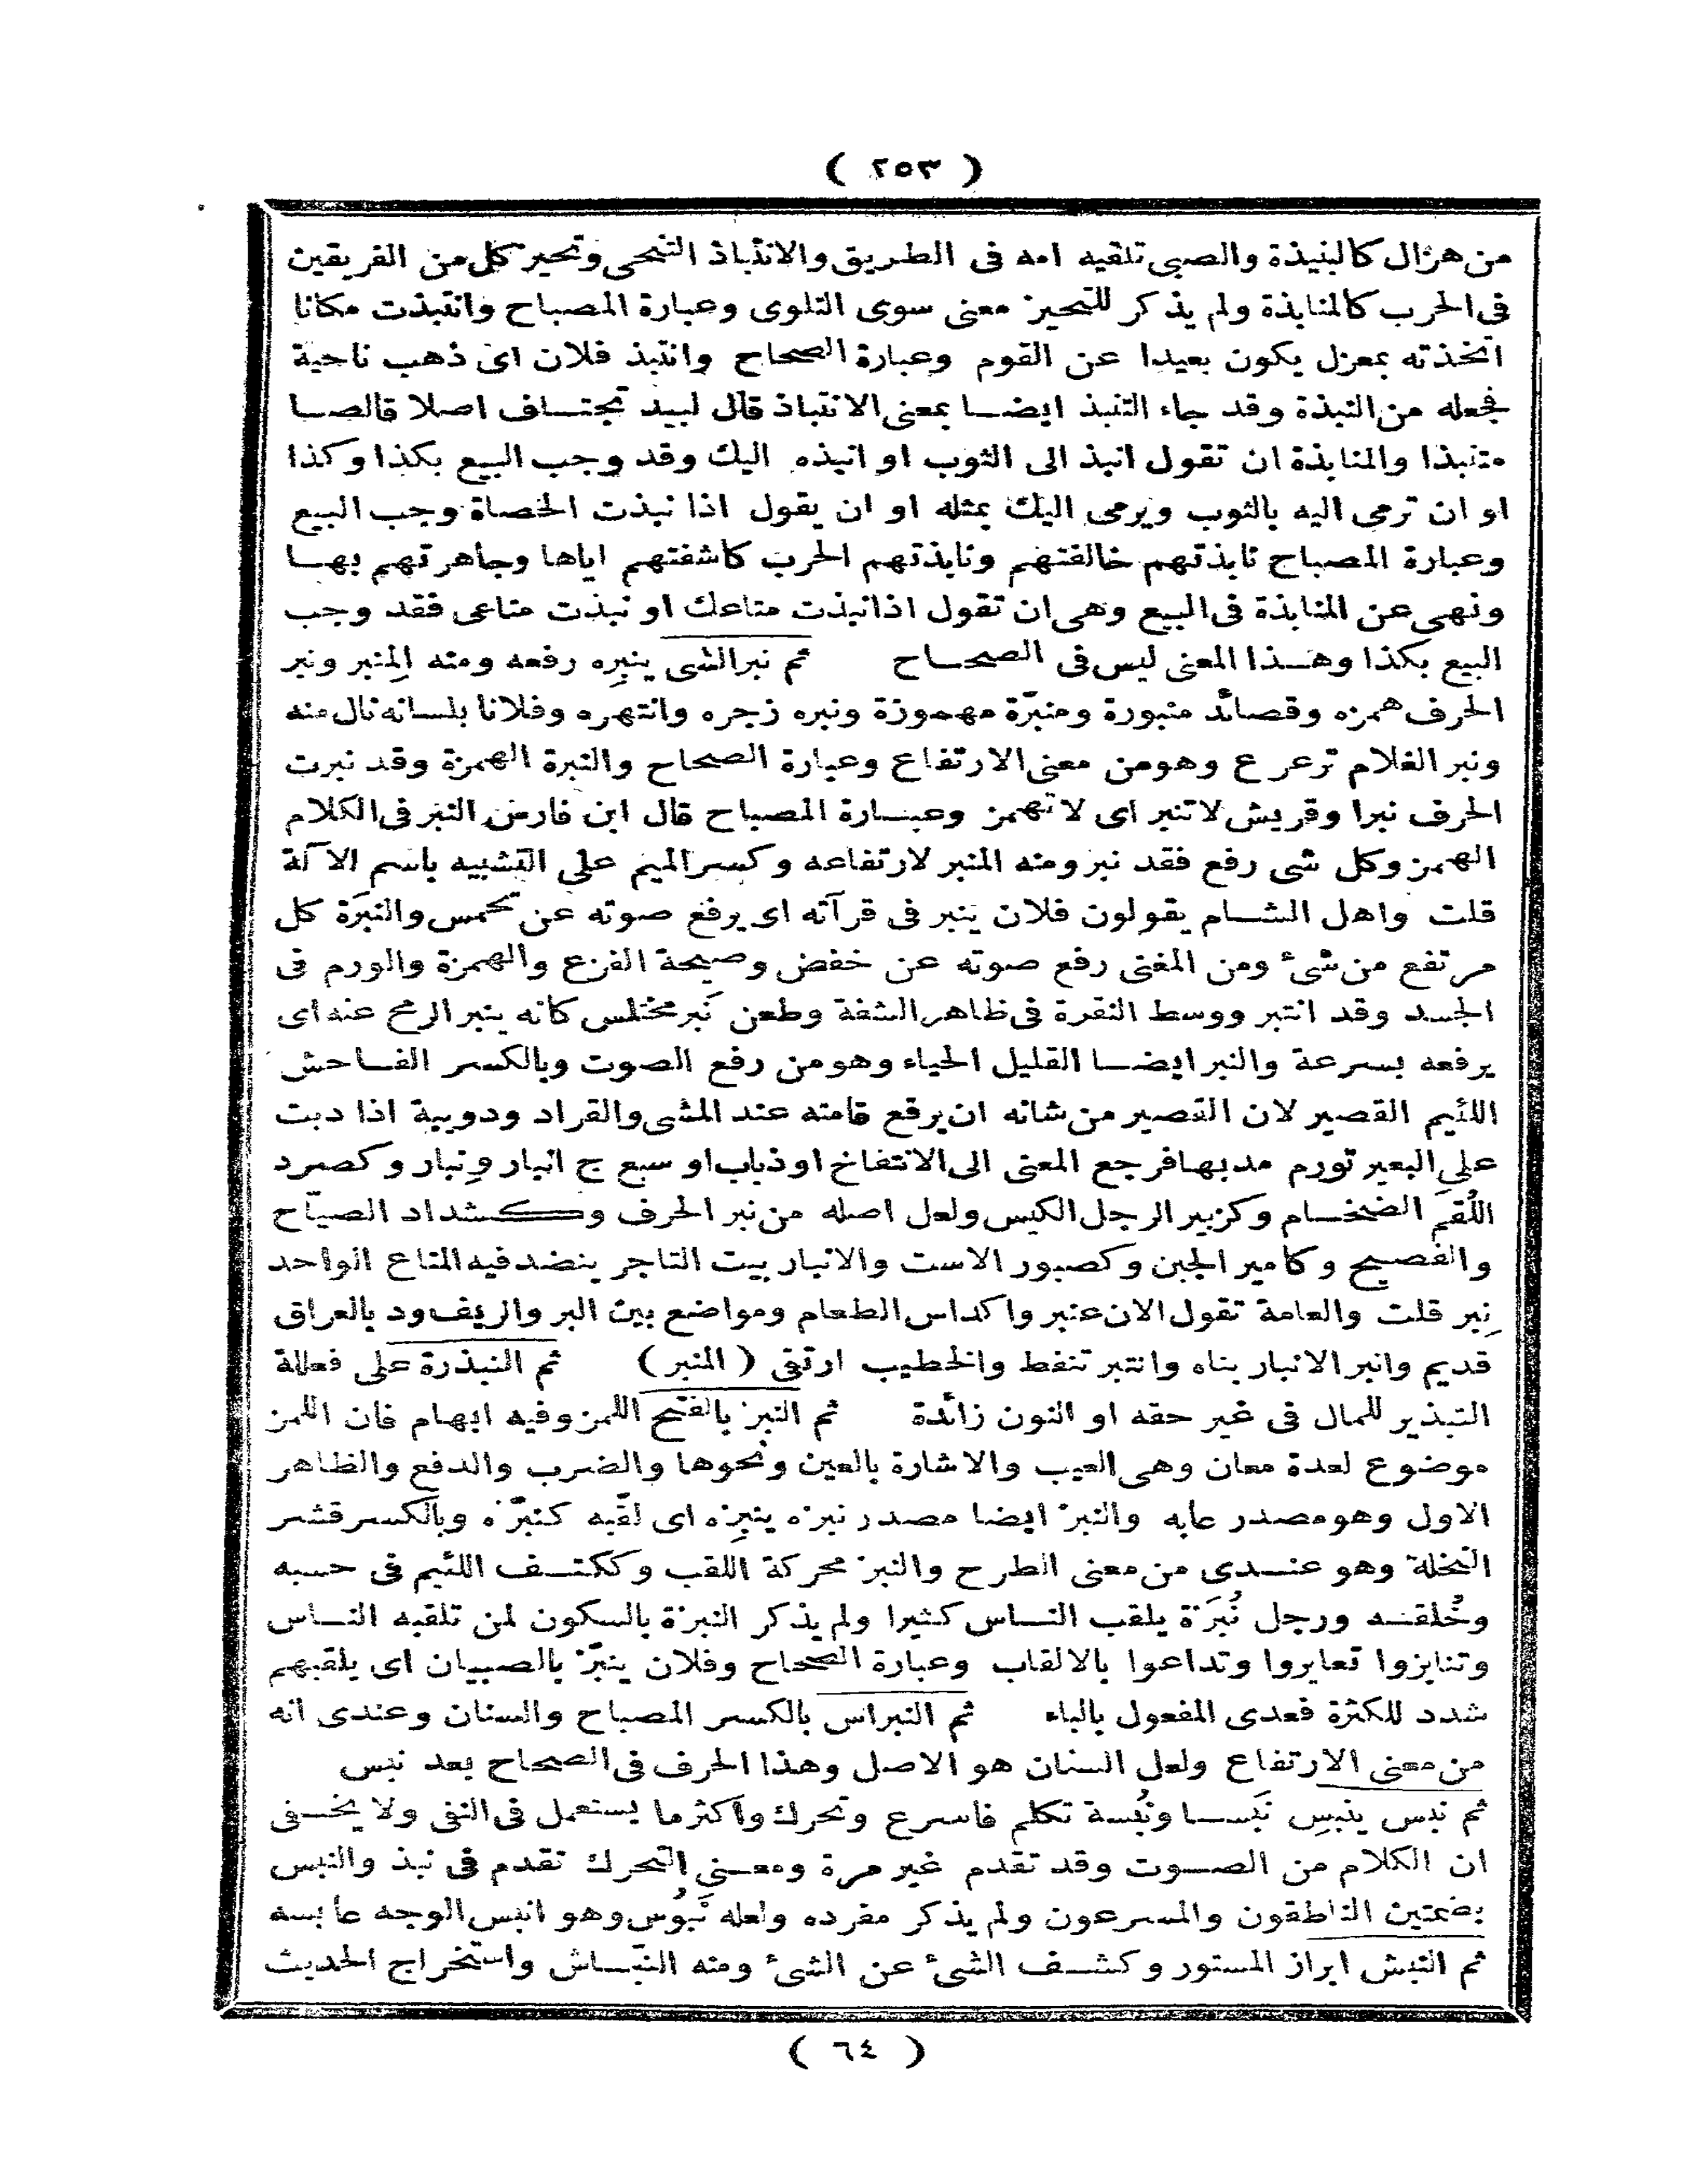 ( ٢٥٣ )
من هزال كالنبيذة والصبى تلقيه امه فى الطريق والانتباذ التنحى وتحيز كل من الفريقين
فى الحرب كالمنابذة ولم يذكر للتحيز معنى سوى التلوى وعبارة المصباح وانتبذت مكانا
اتخذته بمعزل يكون بعيدا عن القوم وعبارة الصحاح وانتبذ فلان اى ذهب ناحية
فجعله من النبذة وقد جاء التنبذ ايضا بمعنى الانتباذ قال لبيد تجتاف اصلا قالصا
متنبذا والمنابذة ان تقول انبذ الى الثوب او انبذه اليك وقد وجب البيع بكذا وكذا
او ان ترمى اليه بالثوب ويرمى اليك بمثله او ان يقول اذا نبذت الحصاة وجب البيع
وعبارة المصباح نابذتهم خالفتهم ونابذتهم الحرب كاشفتهم اياها وجاهرتهم بها
ونهى عن المنابذة فى البيع وهى ان تقول اذا نبذت متاعك او نبذت متاعى فقد وجب
البيع بكذا وهذا المعنى ليس فى الصحاح ثم نبر الشى ينبِره رفعه ومنه المِنبر ونبر
الحرف همزه وقصائد منبورة ومنبّرة مهموزة ونبره زجره وانتهره وفلانا بلسانه نال منه
ونبر الغلام ترعرع وهو من معنى الارتفاع وعبارة الصحاح والنبرة الهمزة وقد نبرت
الحرف نبرا وقريش لا تنبر اى لا تهمز وعبارة المصباح قال ابن فارس النبر فى الكلام
الهمز وكل شى رفع فقد نبر ومنه المنبر لارتفاعه وكسر الميم على التشبيه باسم الآلة
قلت واهل الشام يقولون فلان ينبر فى قرآته اى يرفع صوته عن تحمس والنبرَة كل
مرتفع من شىء ومن المغنى رفع صوته عن خفض وصيحة الفزع والهمزة والورم فى
الجسد وقد انتبر ووسط النقرة فى ظاهر الشفة وطعن نَبر مختلس كانه ينبر الرمح عنه اى
يرفعه بسرعة والنبر ايضا القليل الحياء وهو من رفع الصوت وبالكسر الفاحش
اللئيم القصير لان القصير من شانه ان يرفع قامته عند المشى والقراد ودويبة اذا دبت
على البعير تورم مدبها فرجع المعنى الى الانتفاخ او ذباب او سبع ج انبار ونِبار وكصرد
اللُقَم الضخام وكزبير الرجل الكيس ولعل اصله من نبر الحرف وكشداد الصيّاح
والفصيح وكامير الجبن وكصبور الاست والانبار بيت التاجر ينضد فيه المتاع الواحد
نِبر قلت والعامة تقول الان عنبر واكداس الطعام ومواضع بين البر والريف ود بالعراق
قديم وانبر الانبار بناه وانتبر تنفط والخطيب ارتقى ( المنبر ) ثم النبذرة على فعللة
التبذير للمال فى غير حقه او النون زائدة ثم النبز بالفتح اللمز وفيه ابهام فان اللمز
موضوع لعدة معان وهى العيب والاشارة بالعين ونحوها والضرب والدفع والظاهر
الاول وهو مصدر عابه والنبز ايضا مصدر نبزه ينبِزه اى لقّبه كنبّزه وبالكسر قشر
النخلة وهو عندى من معنى الطرح والنبز محركة اللقب وككتف اللئيم فى حسبه
وخُلقه ورجل نُبَزة يلقب الناس كثيرا ولم يذكر النبزة بالسكون لمن تلقبه الناس
وتنابزوا تعايروا وتداعوا بالالقاب وعبارة الصحاح وفلان ينبّز بالصبيان اى يلقبهم
شدد للكثرة فعدى المفعول بالباء ثم النبراس بالكسر المصباح والسنان وعندى انه
من معنى الارتفاع ولعل السنان هو الاصل وهذا الحرف فى الصحاح بعد نبس
ثم نبس ينبِس نَبسا ونُبسة تكلم فاسرع وتحرك واكثر ما يستعمل فى النفى ولا يخفى
ان الكلام من الصوت وقد تقدم غير مرة ومعنى التحرك تقدم فى نبذ والنبس
بضمتين الناطقون والمسرعون ولم يذكر مفرده ولعله نَبُوس وهو انبس الوجه عابسه
ثم النبش ابراز المستور وكشف الشىء عن الشىء ومنه النبّاش واستخراج الحديث
( ٦٤ )